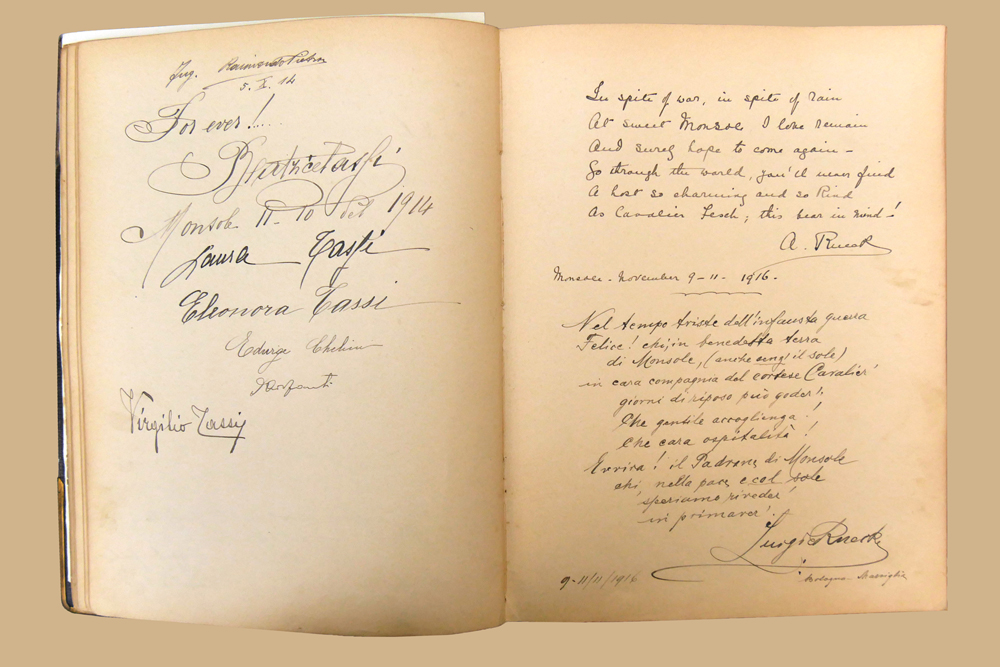 Ing. Raimondo
5. X. 14
For ever!.....
Beatrice Tassi
Monsole 11-10 del 1914
Laura Tassi
Eleonora Tassi
Edwige
Virgilio Tassi
In spite of war, in spite of rain
At sweet Monsole I love remain
And surely hope to come again —
Go through the world, you'll never find
A host so charming and so kind
As Cavalier Lesch; this bear in mind!
A. Rueck
Monsole - November 9-11 - 1916.
Nel tempo triste dell'infausta guerra
Felice! chi, in benedetta terra
di Monsole, (anche senz' il sole)
in cara compagnia del cortese Cavalier'
giorni di riposo può goder'!
Che gentile accoglienza!
Che cara ospitalità!
Evviva! il Padrone di Monsole
chi nella pace e col sole
speriamo riveder'
in primaver'!
Luigi Rueck
9-11/11/1916
Bologna - Marsiglia